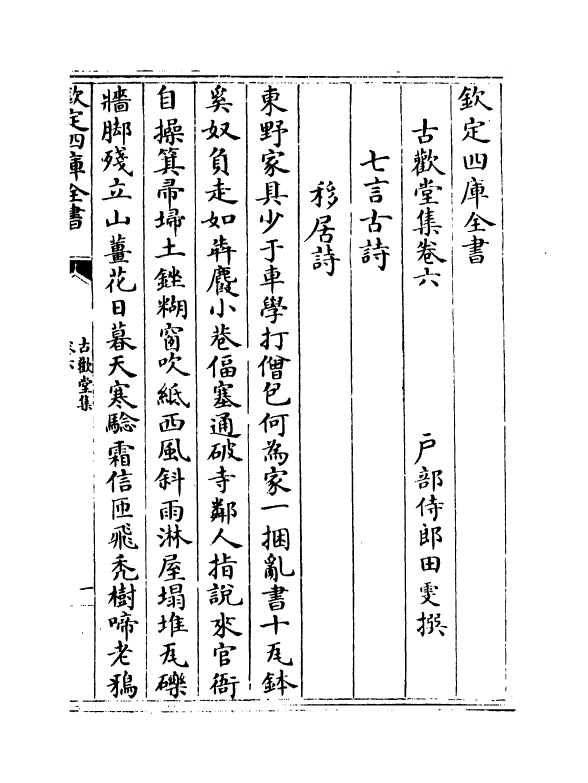 欽定四庫全書
古歡堂集卷六
戶部侍郎田雯撰
七言古詩
移居詩
東野家具少于車學打僧包何為家一捆亂書十瓦鉢
奚奴負走如犇麚小巷偪塞通破寺鄰人指說來官衙
自操箕帚埽土銼糊窗吹紙西風斜雨淋屋塌堆瓦礫
牆脚殘立山薑花日暮天寒騐霜信匝飛禿樹啼老鴉
欽定四庫全書
古歡堂集
卷六
一